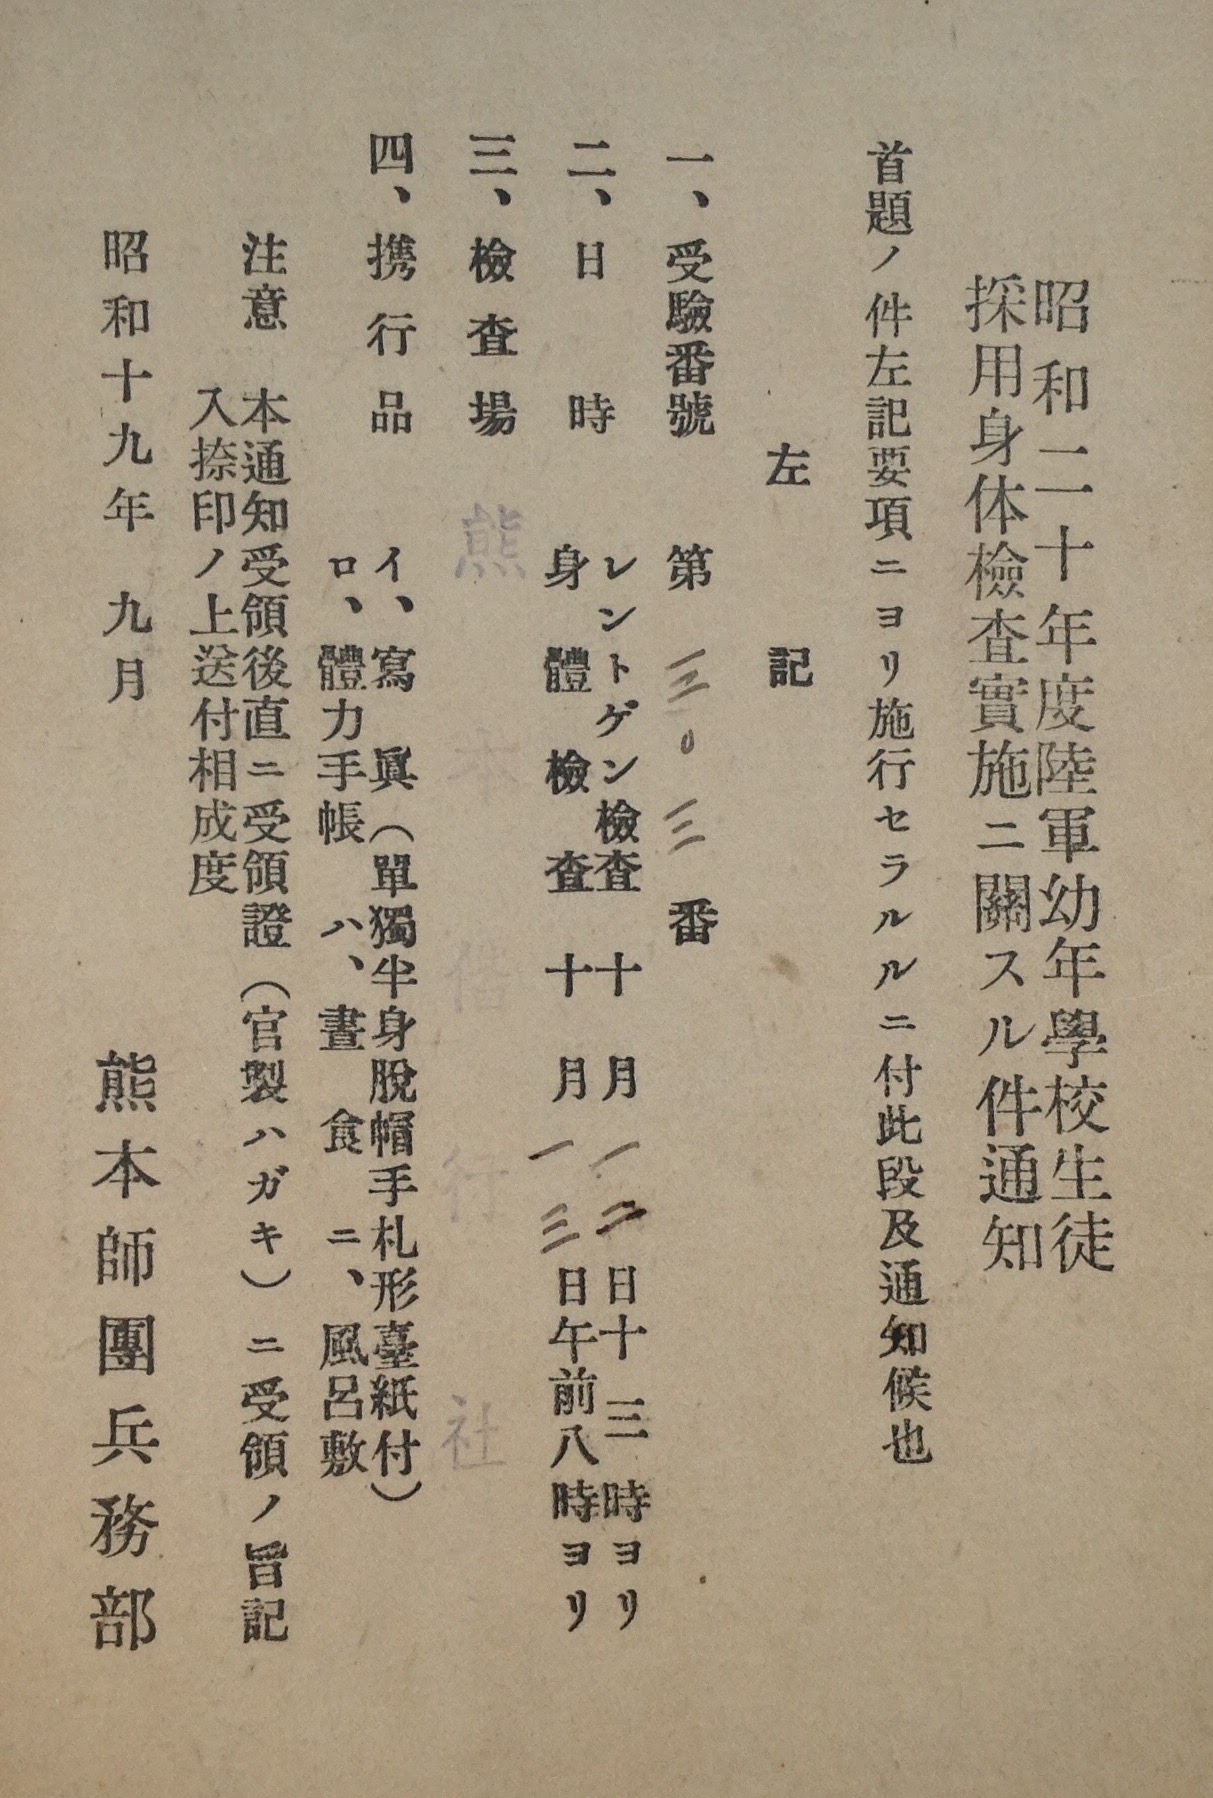 昭和二十年度陸軍幼年學校生徒
採用身体檢査實施ニ關スル件通知
首題ノ件左記要項ニヨリ施行セラルルニ付此段及通知候也
左記
一、受驗番號 第三〇三番
二、日時 レントゲン檢査 十月一二日十三時ヨリ
身體檢査 十月一三日午前八時ヨリ
三、檢査場 熊本偕行社
四、携行品 イ、寫眞(單獨半身脫帽手札形臺紙付)
ロ、體力手帳 ハ、晝食 ニ、風呂敷
注意 本通知受領後直ニ受領證(官製ハガキ)ニ受領ノ旨記
入捺印ノ上送付相成度
昭和十九年九月
熊本師團兵務部